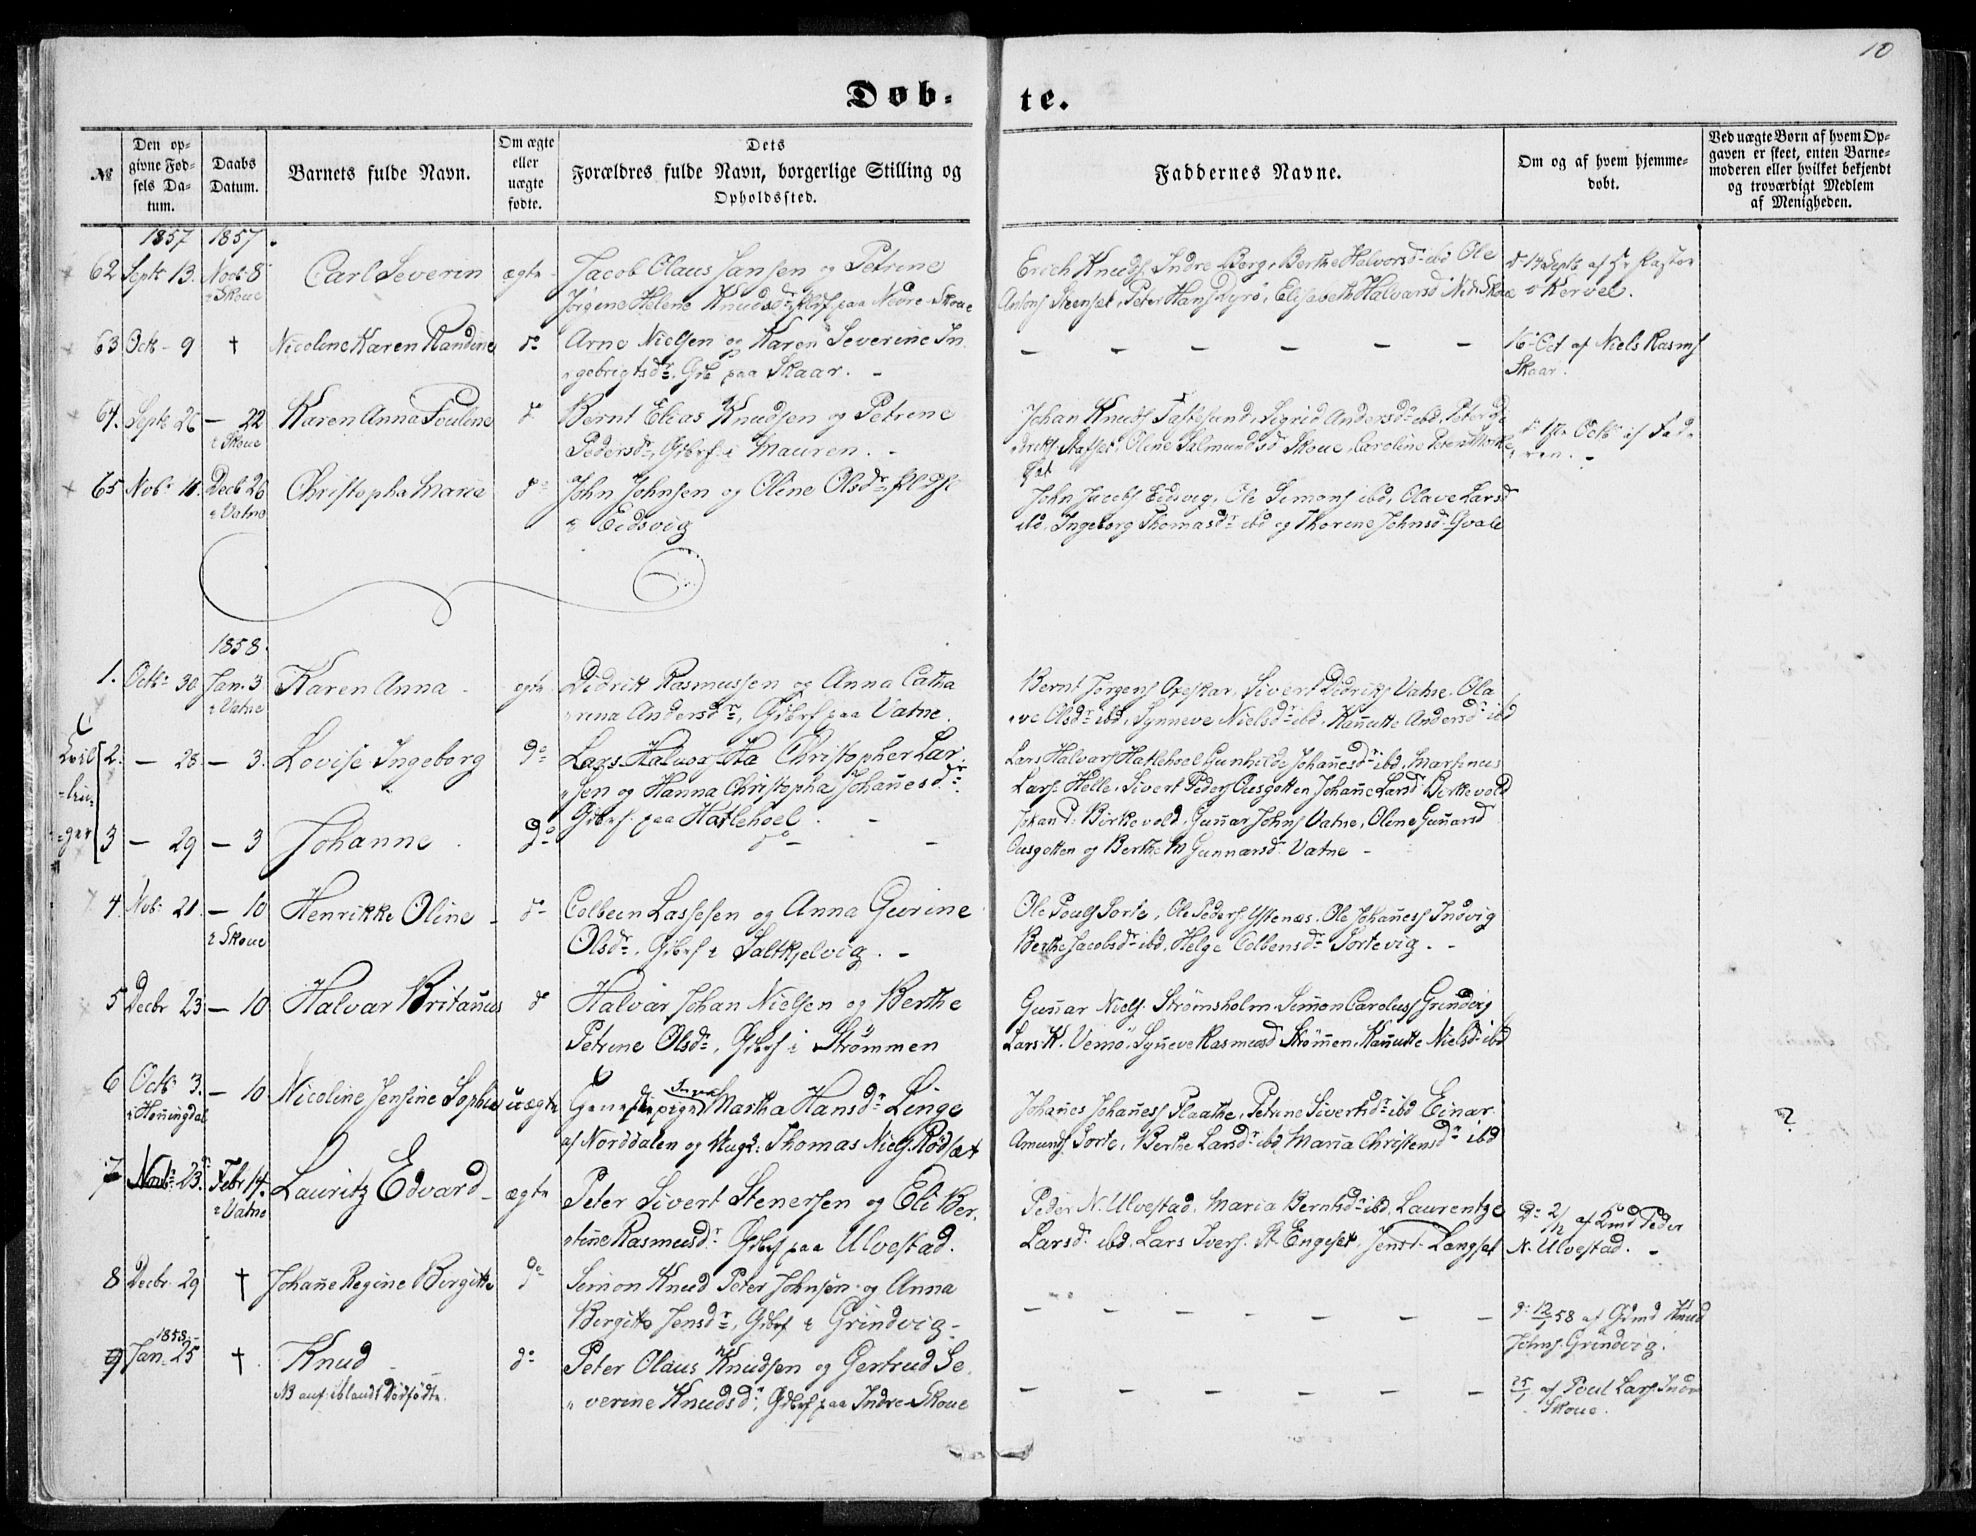 10
Døb-
te.
№
Den op-
givne Fød-
sels Da-
tum.
Daabs
Datum.
Barnets fulde Navn.
Om ægte
eller
uægte
fødte.
Dets
Forældres fulde Navn, borgerlige Stilling og
Opholdssted.
Faddernes Navne.
Om og af hvem hjemme-
døbt.
Ved uægte Børn af hvem Op-
gaven er skeet, enten Barne-
moderen eller hvilket bekjendt
og troværdigt Medlem
af Menigheden.
1857 1857.
62 Septb 13. Novb 8 Carl Severin ægte Jacob Claus Jansen og Petrine
i Skoue Jørgine Helene Knudsdr paa Nedre Skoue
Erich Knuds. Indre Berg, Berthe Halvorsd ibd Ole
Antons Steenset, Peter Hans Dyrø, Elisabeth Halvarsd N. Skoue
d 14 Septb af Hr Pastor
Kervel.
63 Octb 9 † Nicoline Karen Randine do Arne Nielsen og Karen Severine In
gebrigtsdr, Gb paa Skaar. -
- - - - - -
16 Oct af Niels Rasms
Skaar.
64. Septb 26 - 22 Karen Anna Pouline d Bernt Elias Knudsen og Petrene
i Skoue Pedersdr, Gbrf. i Mauren. -
Johan Knuds Sigrid Andersdr ibd, Peter Di
driks Oline Salmundsd Skoue, Caroline Peters
set
d 17 Octb af Fad-
eren. -
65 Novb 11. Decb 26 Christopha Marie do John Johnsen og Oline Olsdr,
i Vatne i Eidsvig
John Jacobs Eidsvig, Ole Simons ibd, Olave Larsd
ibd, Ingeborg Thomasdr ibd og Thorene Johnsd Gvale
1858.
1. Octb 30 Jan. 3 Karen Anna - egte Didrik Rasmussen og Anna Catha
i Vatne rina Andersdr, Gbrf paa Vatne.
Bernt Jørgens Apeskar, Sivert Didriks Vatne, Ola
ve Olsdr ibd, Synneve Nielsdr ibd, Hanutte Andersdr ibd
Tvil-
lin-
ger
2. - 28 - 3. Lovise Ingeborg do Lars Halvors Ha Christopher Lar
sen og Hanna Christopha Johanesdr
Gbrf. paa Hatlehoel. -
Lars Halvars Hatlehoel Gunhilde Johanesdr ibd, Martinus
Lars. Helle, Sivert Peders Ousgotten Johane Larsd Birkevold
3 - 29 - 3 Johanne. do do - -
Johan D. Birkevold, Gunar Johns Vatne, Oline Gunarsd
Ousgotten og Berthe M Gunnarsd. Vatne -
4 Nvb. 21. - 10 Henrikke Oline - do Colbeen Lassesen og Anna Gurine
i Skoue Olsdr, Gbrf i Saltkjelvig. -
Ole Pouls Sorte, Ole Peders. Ystenæs, Ole Johanes Indvig
Berthe Jacobsdr ibd, Helge Colbensdr Sortevig. -
5 Decbr 23 - 10 Halvar Britanus do Halvar Johan Nielsen og Berthe
Petrine Olsdr, Gbrf i Strømmen
Gunar Niels. Strømsholm, Simon Carolus Grindvig
Lars K. Vemø, Syneve Rasmusd Strømen, Hanutte Nielsdr ibd
6 Octb 3. - 10 Nicoline Jensine Sophie uægte Martha Hansdr Linge
i Honingdal af Norddalen og Ungk: Thomas Niels. Rødsæt
Johanes Johaness Flaathe, Petrine Sivertsdr ibd Einar
Amunds Sorte, Berthe Larsdr ibd Maria Christensdr ibd
?
7 Novb. 23. Febr 14. Lauritz Edvard - ægte Peter Sivert Stenersen og Eli Ber
i Vatne tine Rasmusdr Gbrf paa Ulvestad.
Peder N. Ulvestad, Maria Berntsdr ibd, Laurentze
Larsd. ibd, Lars Ivers. St. Engeset, Jens Langset
Do 2/12 af Gmd Peder
N. Ulvestad. -
8 Decbr 29 † Johane Regine Birgitte do Simon Knud Peter Johnsen og Anna
Birgitte Jensdr, Gbrf i Grindvig -
- - - - - -
d: 12/1 58 af Gmd Knud
Johns. Grindvig.
1858.
9 Jan. 25 † Knud - do Peter Olaus Knudsen og Gertrud Se
NB anf. iblandt Dødfødte. verine Knudsdr, Gbrf paa Indre Skoue
- - - - - -
25/1 af Poul Lars. Indre
Skoue.